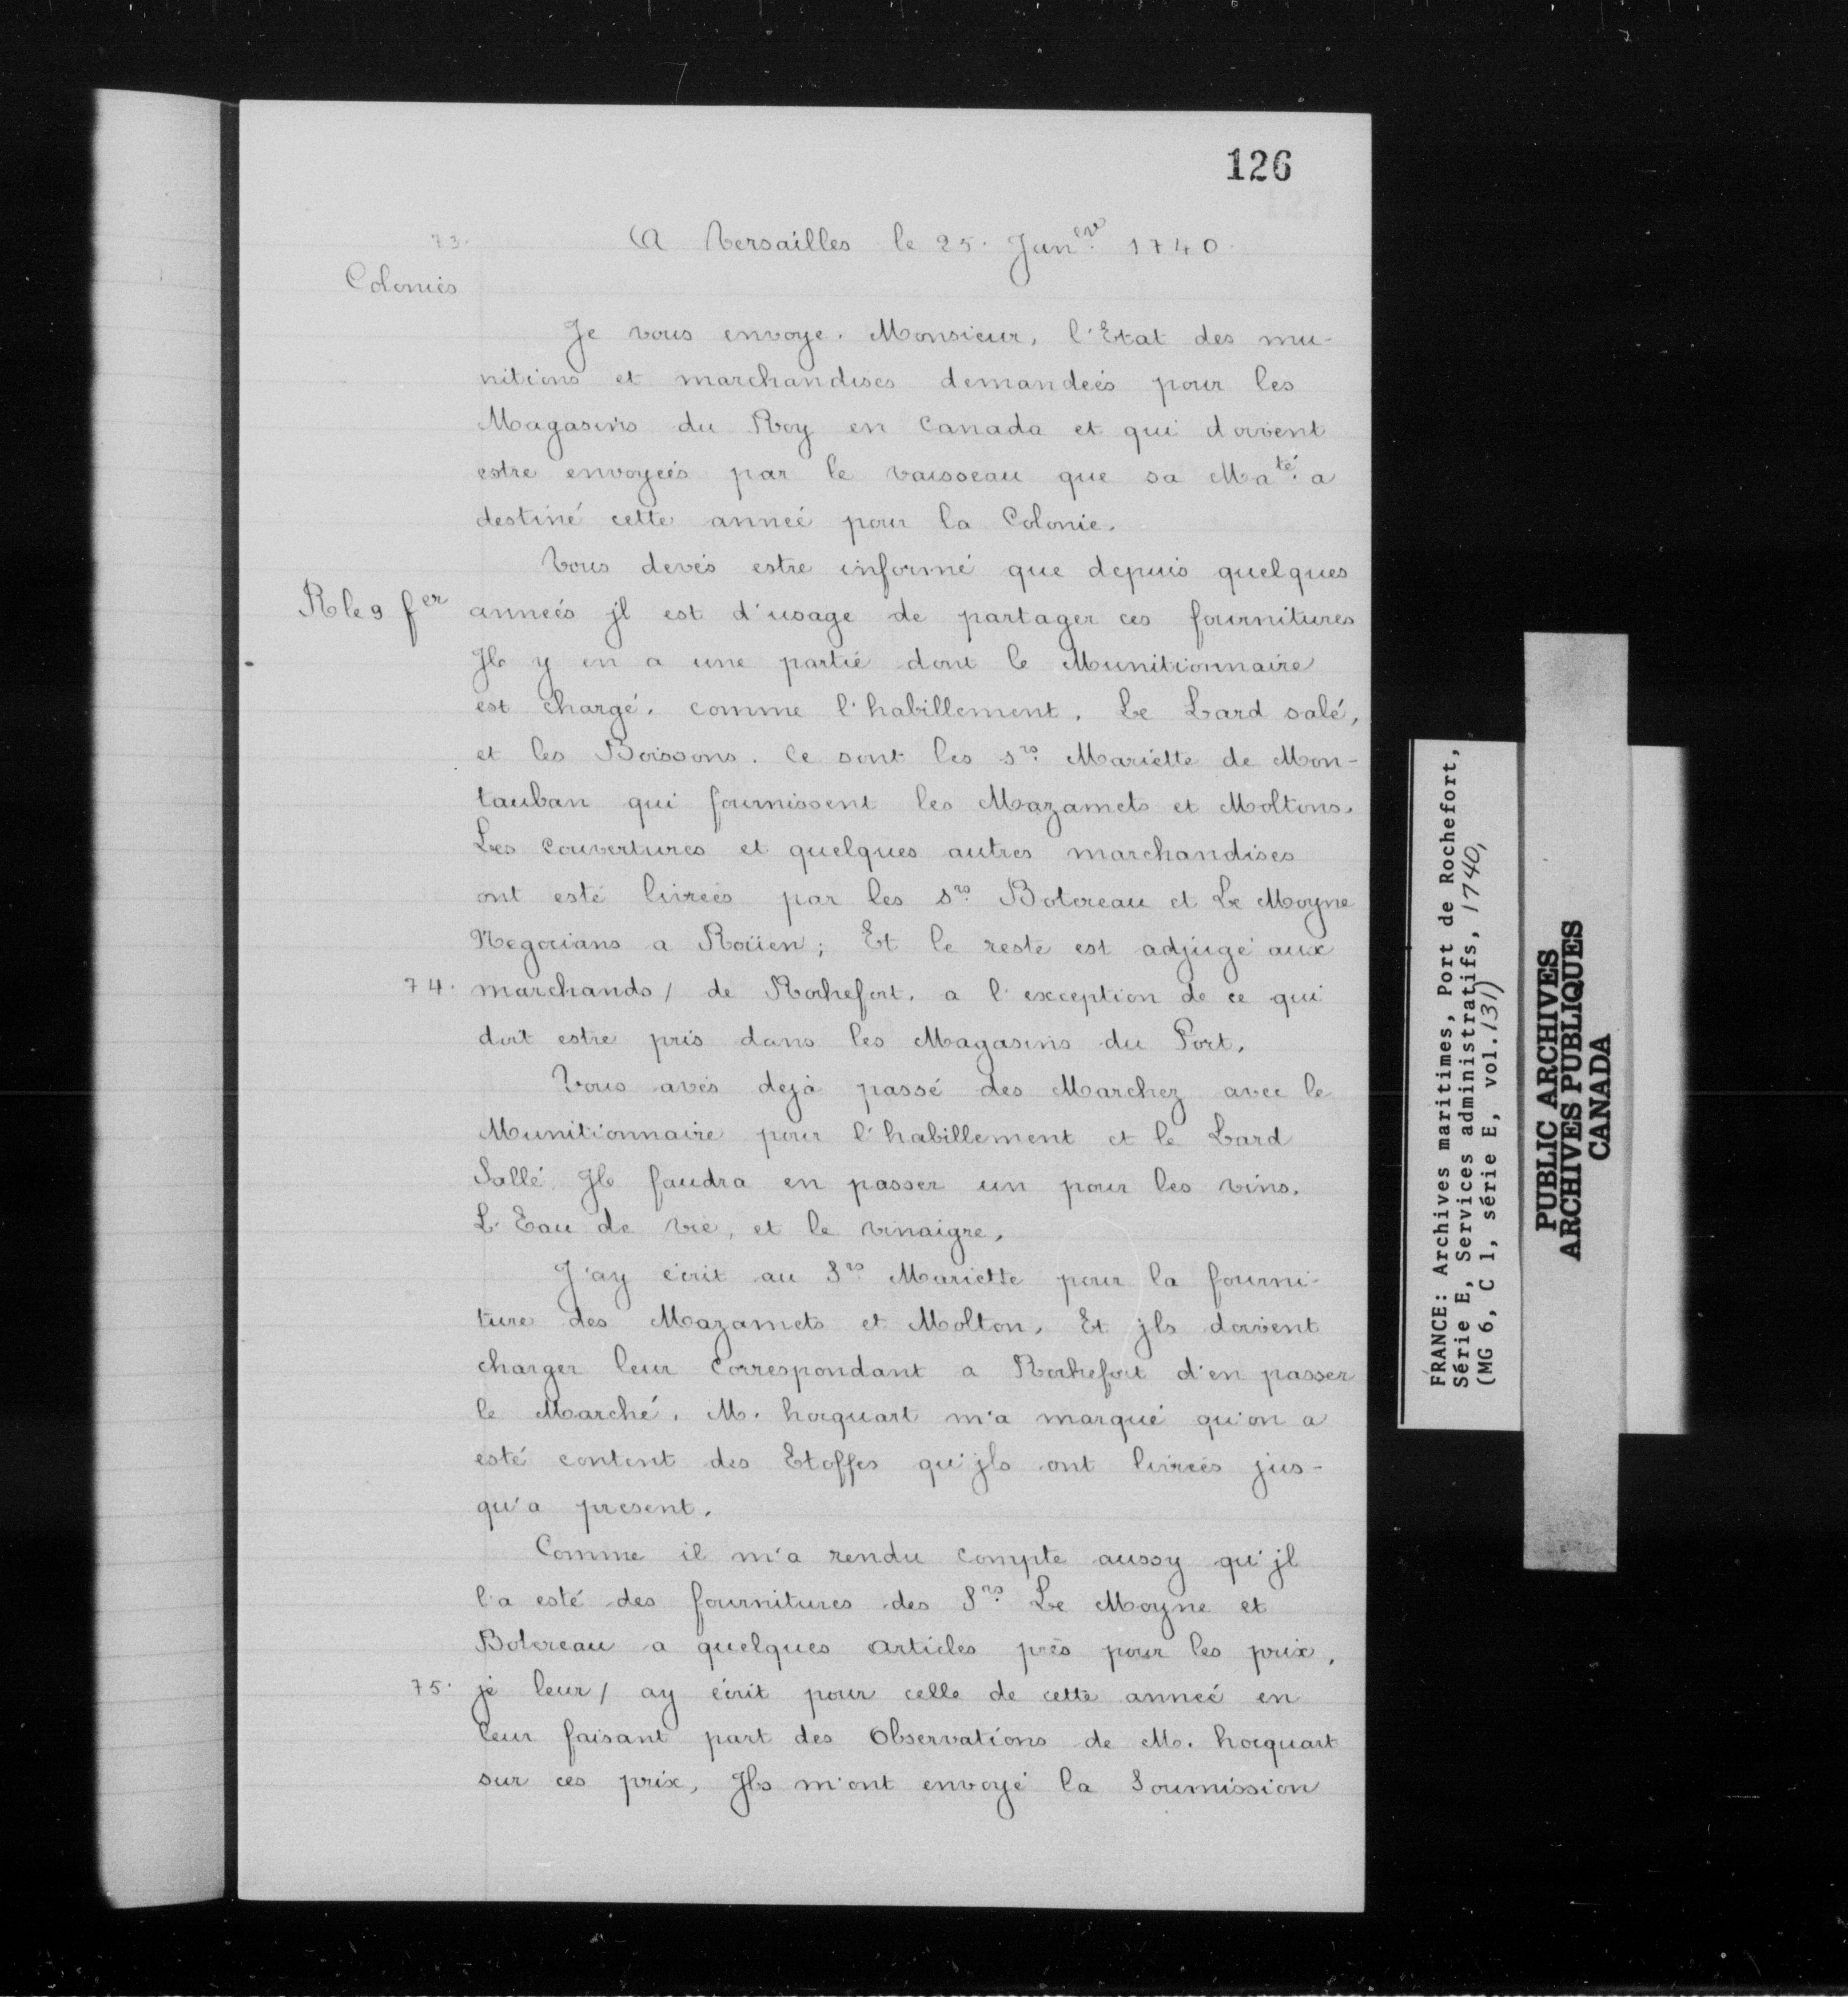 126
73. A Versailles le 25. Janer. 1740.
Colonies
Je vous envoye. Monsieur, l'Etat des mu-
nitions et marchandises demandeés pour les
Magasins du Roy en Canada et qui doivent
estre envoyeés par le vaisseau que sa Maté. a
destiné cette anneé pour la Colonie.
Vous devés estre informé que depuis quelques
R le 9 fer anneés jl est d'usage de partager ces fournitures
Jl y en a une partie dont le Munitionnaire
est chargé. comme l'habillement. Le Lard salé,
et les Boissons. Ce sont les srs. Mariette de Mon-
tauban qui fournissent les Mazamets et Moltons.
Les Couvertures et quelques autres marchandises
ont esté livreés par les srs. Botereau et Le Moyne
Negocians a Roüen; Et le reste est adjugé aux
74. marchands / de Rochefort. a l'exception de ce qui
doit estre pris dans les Magasins du Port.
Vous avés dejà passé des Marchez avec le
Munitionnaire pour l'habillement et le Lard
Sallé. Jl faudra en passer un pour les vins.
L'Eau de vie, et le vinaigre.
J'ay écrit au Srs. Mariette pour la fourni-
ture des Mazamets et Molton. Et jls doivent
charger leur Correspondant a Rochefort d'en passer
le Marché. M. hocquart m'a marqué qu'on a
esté content des Etoffes qu'jls ont livreés jus-
qu'a present.
Comme il m'a rendu compte aussy qu'jl
l'a esté des fournitures des Srs. Le Moyne et
Botereau a quelques articles près pour les prix.
75. je leur / ay écrit pour celle de cette anneé en
leur faisant part des Observations de M. hocquart
sur ces prix, Jls m'ont envoyé la Soumission
FRANCE: Archives maritimes, Port de Rochefort,
Série E, Services administratifs, 1740,
(MG 6, C 1, série E, vol. 131)
PUBLIC ARCHIVES
ARCHIVES PUBLIQUES
CANADA